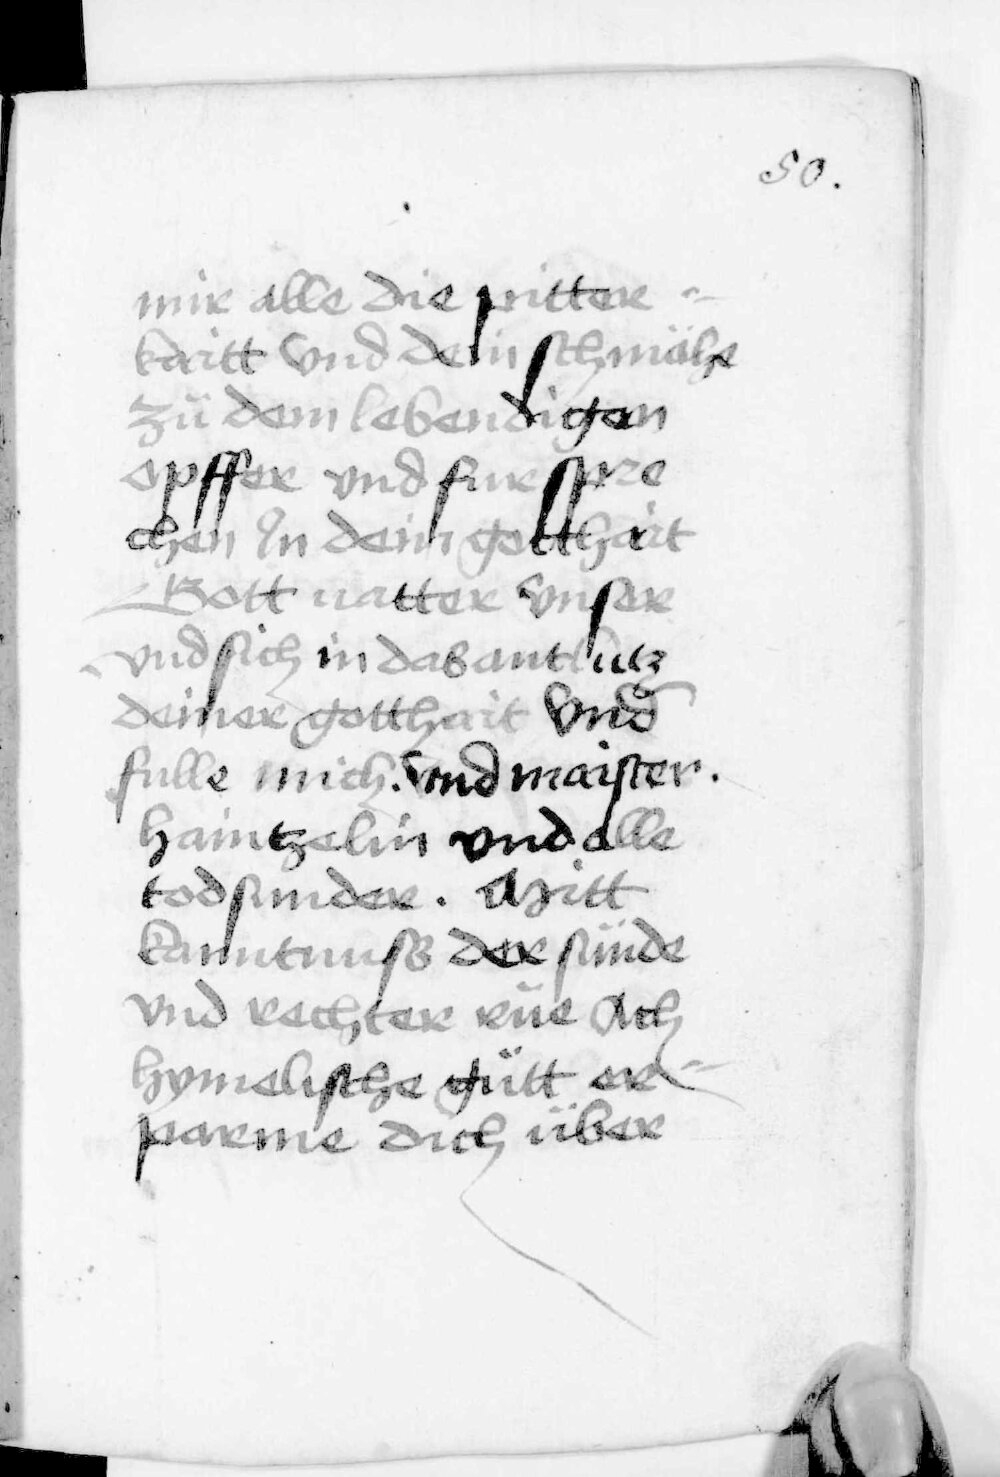 50.
mir alle die pitter-
kaitt vnd dein schmähe
zü dem lebendigen
opffer vnd fur spre
chen In dein gotthait
Gott uatter vnser
vnd sich in das antlutz
deiner gotthait vnd
fulle mich. vnd maister.
haintzelin vnd alle
todsunder. Mitt
kanntnusß der sünde
vnd rechter rüe Ach
hymelische gütt er-
parme dich über